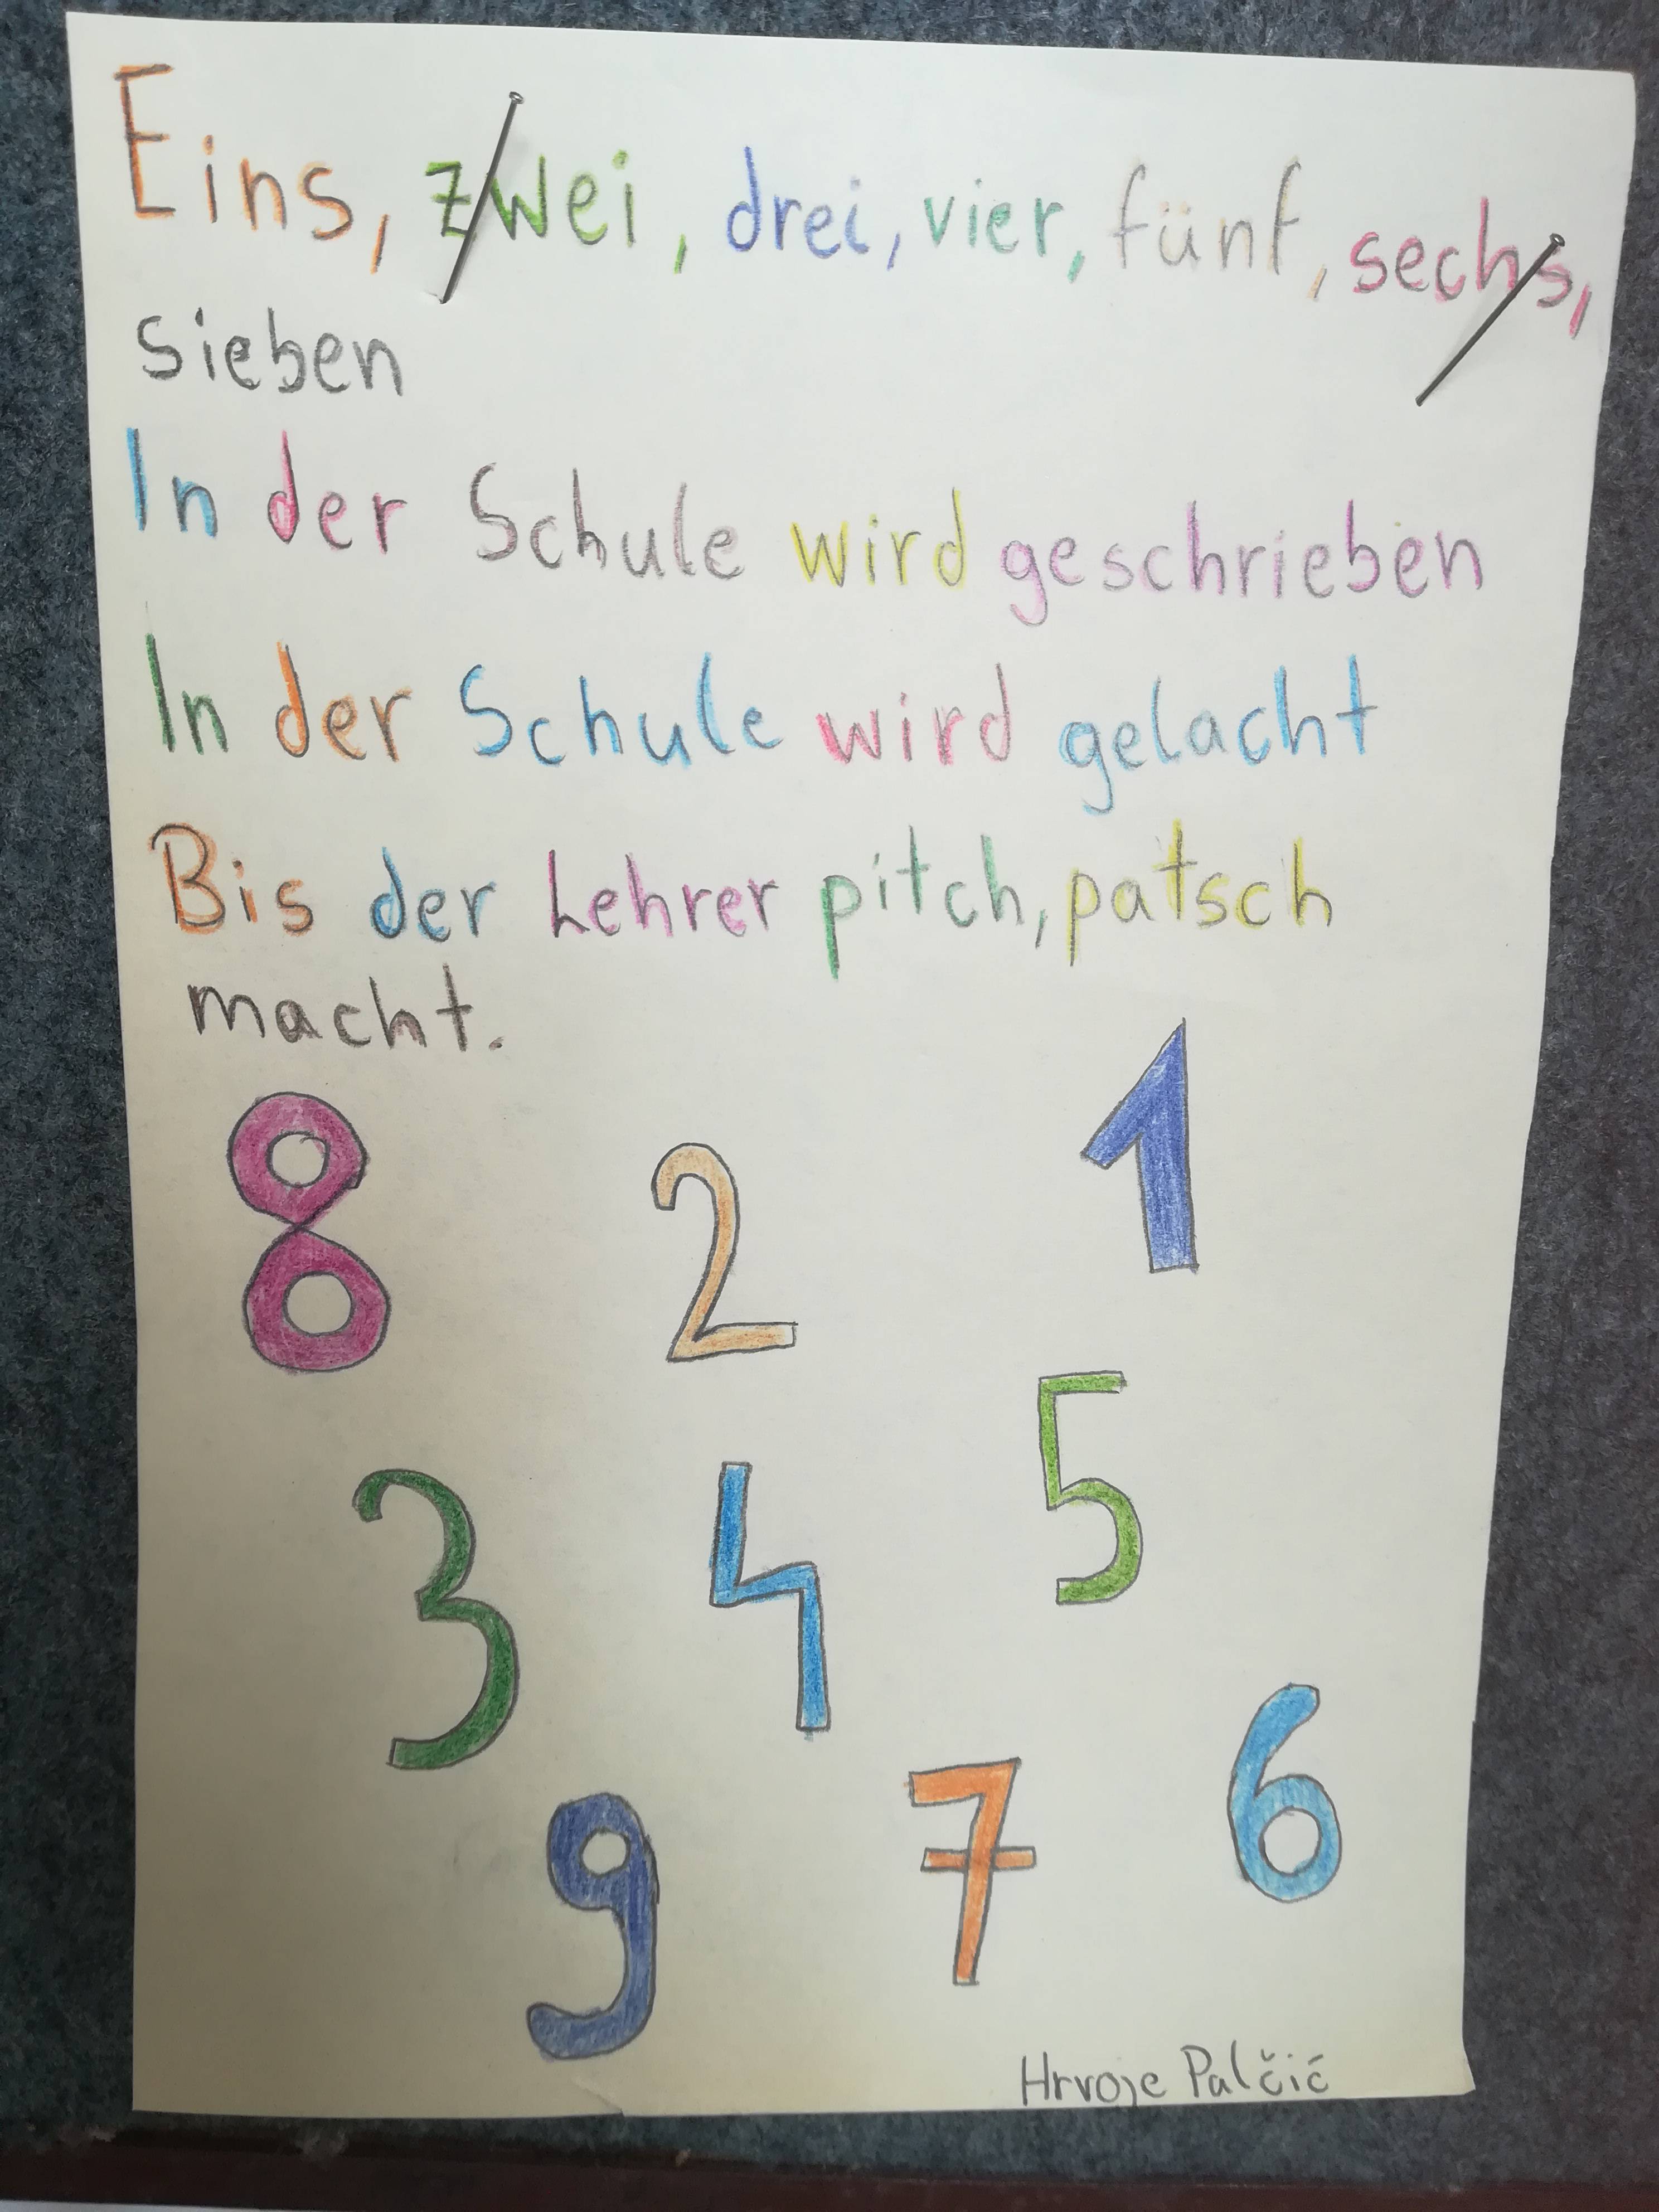 Eins, zwei, drei, vier, fünf, sechs,
sieben
In der Schule wird geschrieben
In der Schule wird gelacht
Bis der Lehrer pitch, patsch
macht.
8 2 1
3 4 5
9 7 6
Hrvoje Palčić